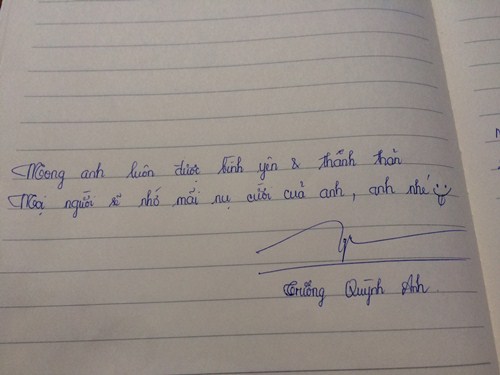 Mong anh luôn được bình yên & thảnh thản
Mọi người sẽ nhớ mãi nụ cười của anh, anh nhé
Trương Quỳnh Anh